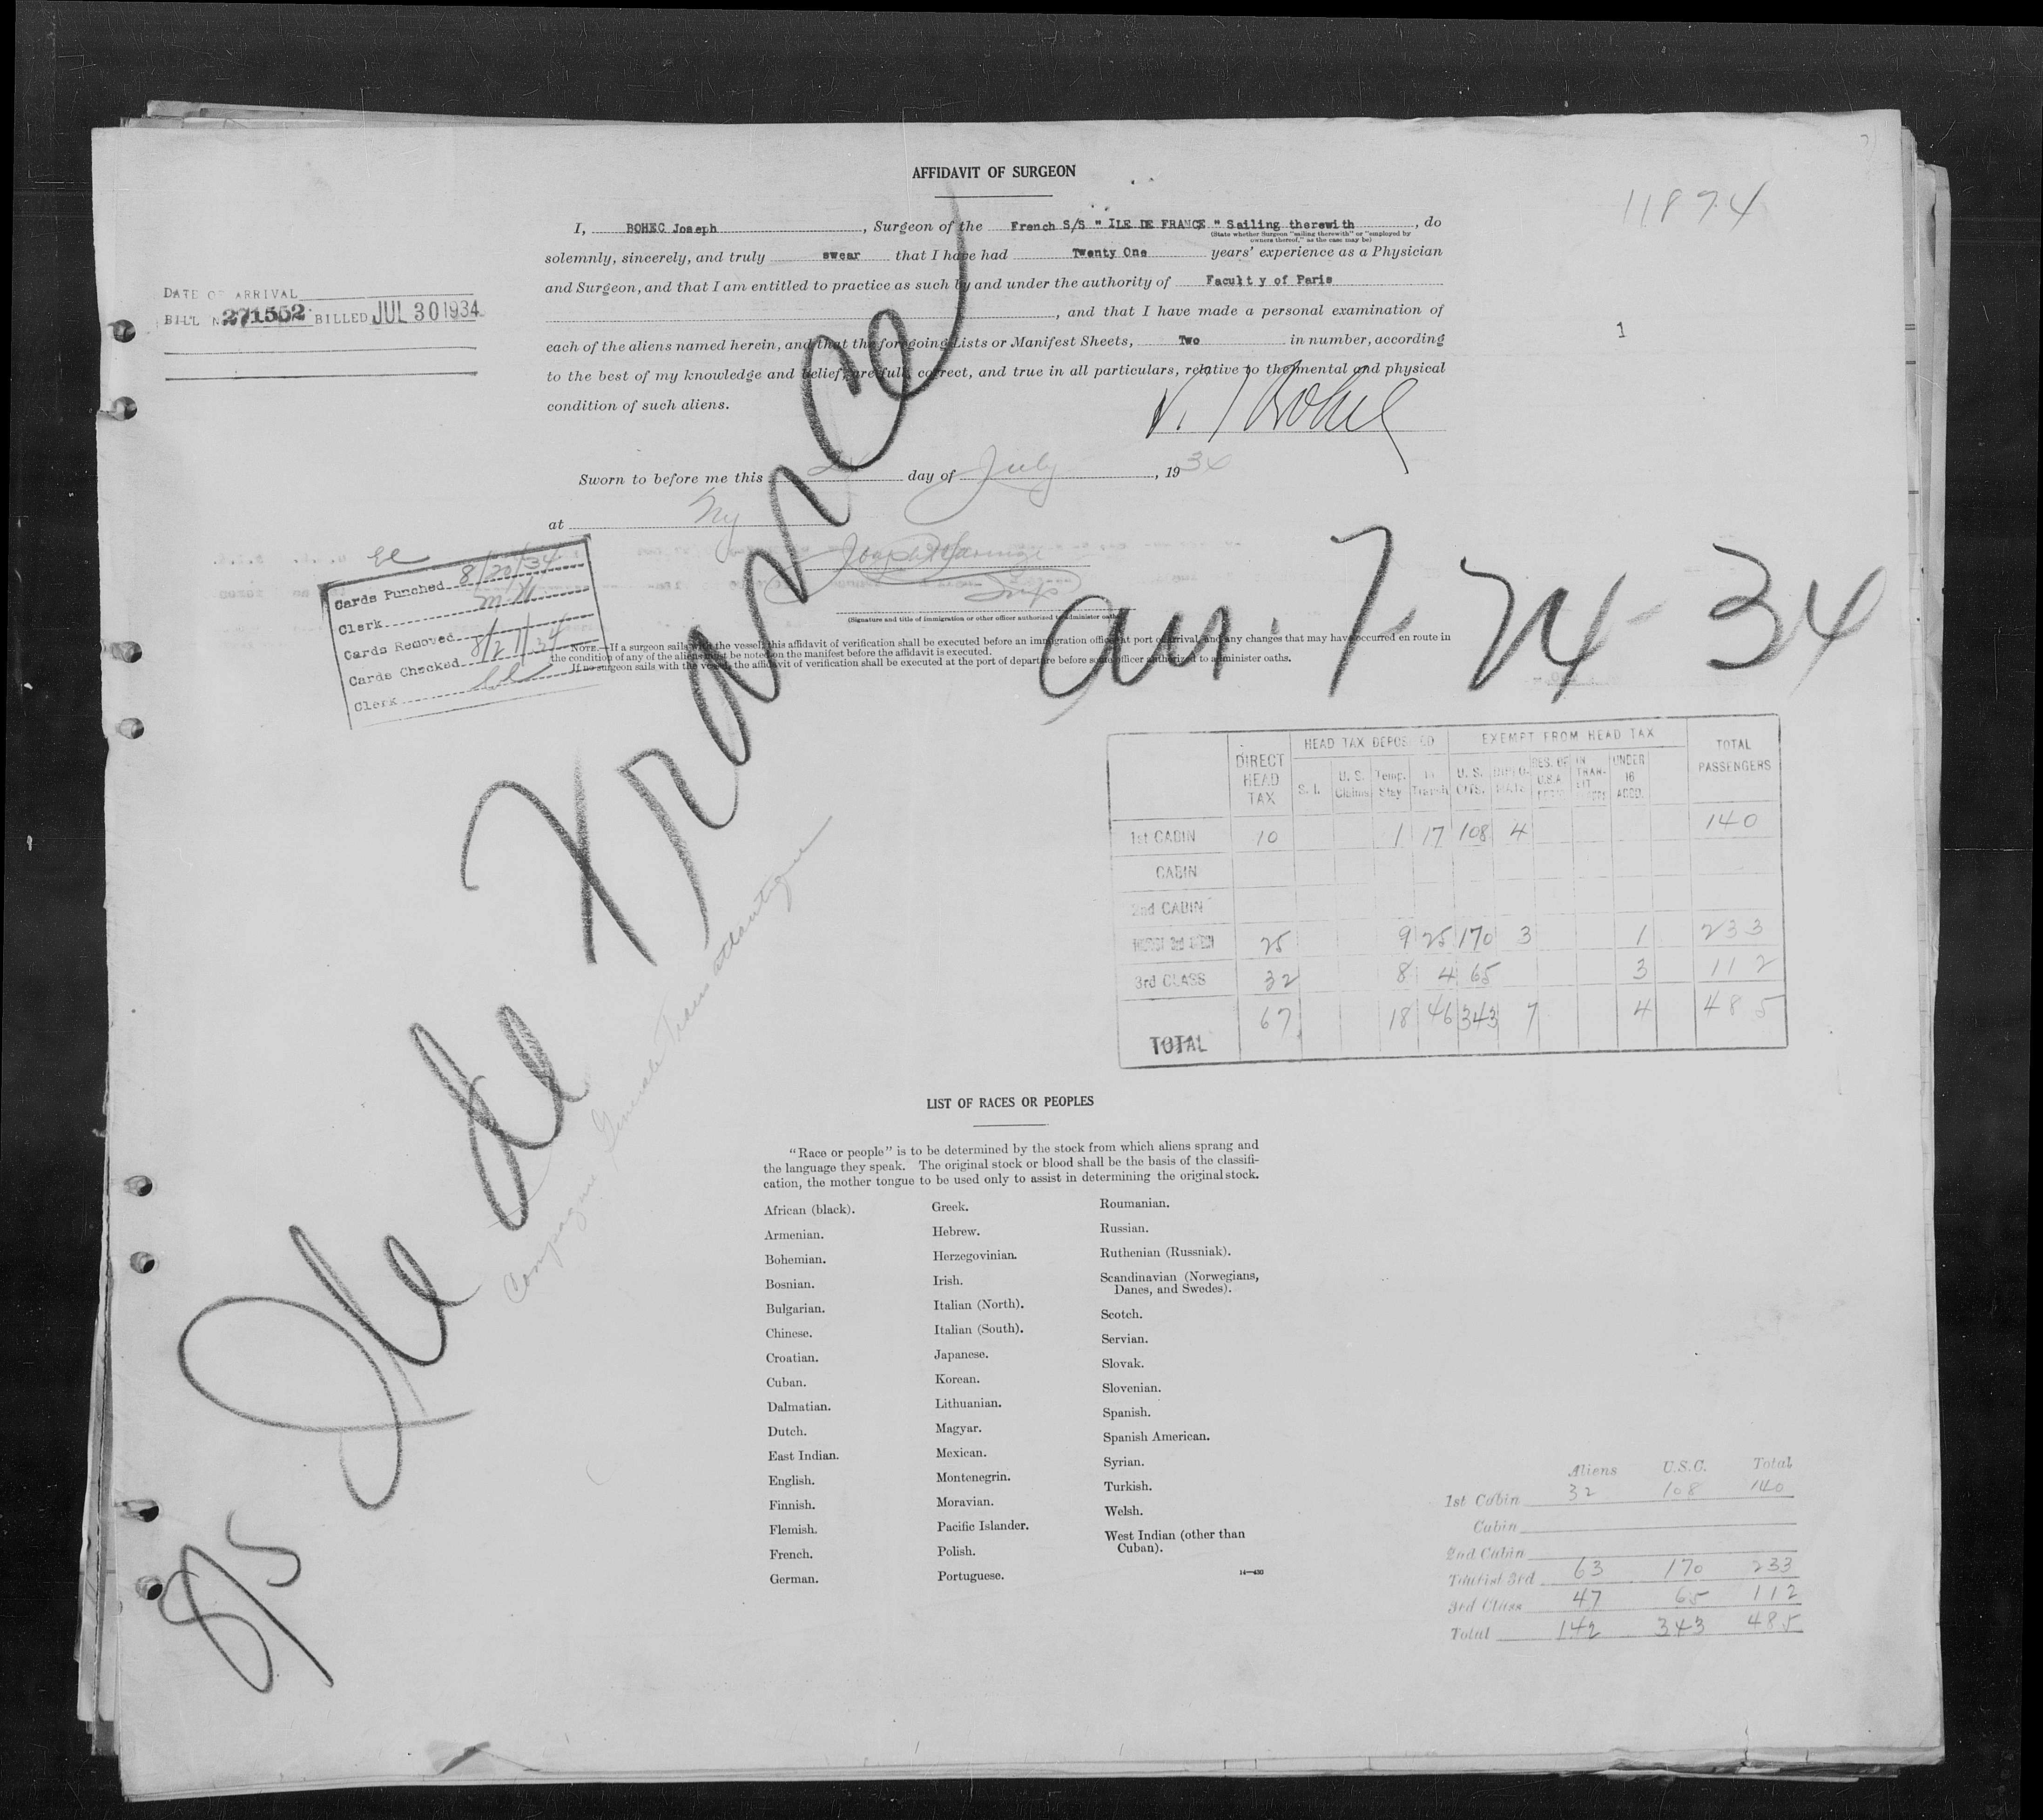 AFFIDAVIT OF SURGEON
11874
I, BOHEC Joseph, Surgeon of the French S/S " ILE DE FRANCE " Sailing therewith, do
(State whether Surgeon "sailing therewith" or "employed by
owners thereof," as the case may be)
solemnly, sincerely, and truly swear that I have had Twenty One years' experience as a Physician
and Surgeon, and that I am entitled to practice as such by and under the authority of Faculty of Paris
, and that I have made a personal examination of
each of the aliens named herein, and that the foregoing Lists or Manifest Sheets, Two in number, according
to the best of my knowledge and belief, are full, correct, and true in all particulars, relative to the mental and physical
condition of such aliens.
DATE OF ARRIVAL
BILL No 271552 BILLED JUL 30 1934
1
Sworn to before me this day of July, 1934
at NY
(Signature and title of immigration or other officer authorized to administer oaths)
Cards Punched 8/20/34
Clerk
Cards Removed
Cards Checked 8/21/34
Clerk
NOTE.—If a surgeon sails with the vessel, this affidavit of verification shall be executed before an immigration officer at port of arrival, and any changes that may have occurred en route in
the condition of any of the aliens must be noted on the manifest before the affidavit is executed.
If no surgeon sails with the vessel, the affidavit of verification shall be executed at the port of departure before some officer authorized to administer oaths.
Ile de France
arr. 7-24-34
Compagnie Generale Transatlantique
8/5
DIRECT HEAD TAX HEAD TAX DEPOSITED EXEMPT FROM HEAD TAX TOTAL PASSENGERS
S. I. U. S. Claims Temp. Stay In Transit U. S. CITS. DIPLO-MATS RES. OF U.S.A. IN TRAN-SIT UNDER 16 ACCD.
1st CABIN 10 1 17 108 4 140
CABIN
2nd CABIN
TOURIST 3rd CABIN 25 9 25 170 3 1 233
3rd CLASS 32 8 4 65 3 112
TOTAL 67 18 46 343 7 4 485
LIST OF RACES OR PEOPLES
"Race or people" is to be determined by the stock from which aliens sprang and
the language they speak. The original stock or blood shall be the basis of the classifi-
cation, the mother tongue to be used only to assist in determining the original stock.
African (black).
Armenian.
Bohemian.
Bosnian.
Bulgarian.
Chinese.
Croatian.
Cuban.
Dalmatian.
Dutch.
East Indian.
English.
Finnish.
Flemish.
French.
German.
Greek.
Hebrew.
Herzegovinian.
Irish.
Italian (North).
Italian (South).
Japanese.
Korean.
Lithuanian.
Magyar.
Mexican.
Montenegrin.
Moravian.
Pacific Islander.
Polish.
Portuguese.
Roumanian.
Russian.
Ruthenian (Russniak).
Scandinavian (Norwegians,
Danes, and Swedes).
Scotch.
Servian.
Slovak.
Slovenian.
Spanish.
Spanish American.
Syrian.
Turkish.
Welsh.
West Indian (other than
Cuban).
14—430
Aliens U.S.C. Total
1st Cabin 32 108 140
Cabin
2nd Cabin
Tourist 3rd 63 170 233
3rd Class 47 65 112
Total 142 343 485